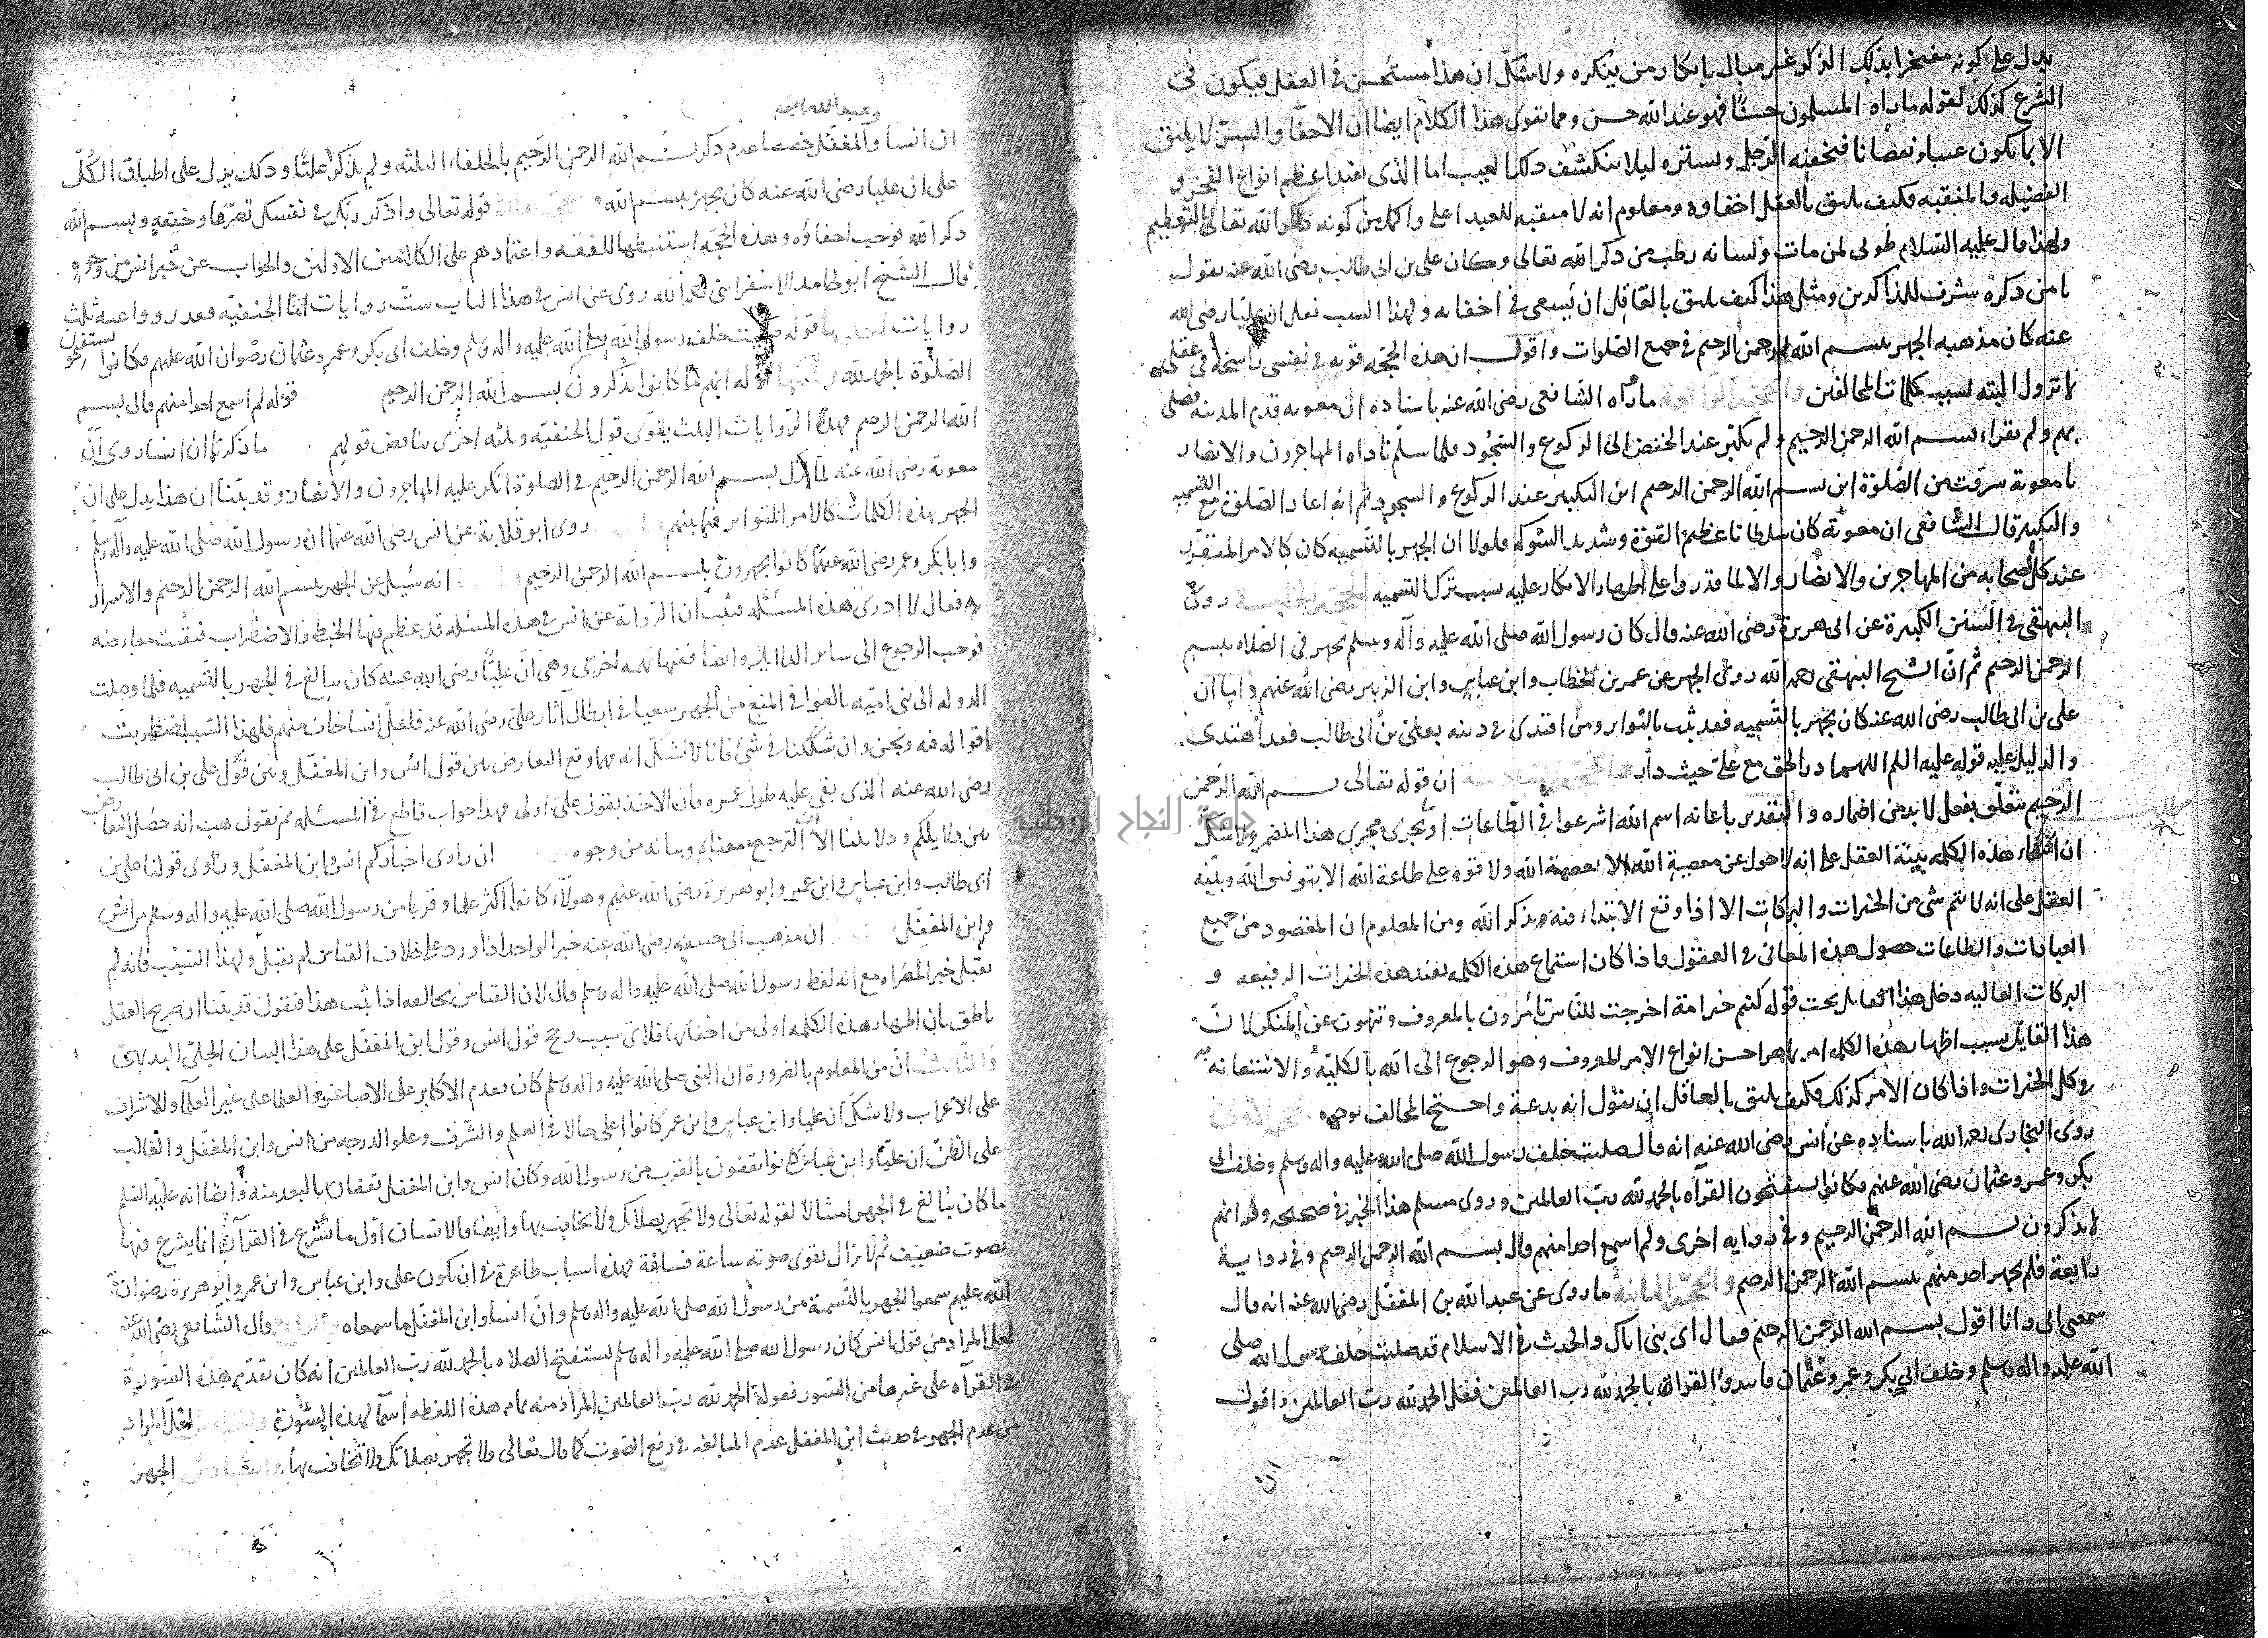 يدل على كونه مفتخرا بذلك الذكر غير مبال بانكار من ينكره ولا شك ان هذا مستحسن في العقل فيكون في
الشرع كذلك لقوله ما راه المسلمون حسنا فهو عند الله حسن ومما يقوى هذا الكلام ايضا ان الاخفا والستر لا يليق
الا بما يكون عيبا ونقصانا فيخفيه الرجل ويستره ليلا ينكشف ذلك العيب اما الذى يفيد اعظم انواع الفخر و
الفضيله والمنقبه فكيف يليق بالعقل اخفاوه ومعلوم انه لا منقبه للعبد اعلى واكمل من كونه ذاكرا لله تعالى بالتعظيم
ولهذا قال عليه السلام طوبى لمن مات ولسانه رطب من ذكر الله تعالى وكان على بن ابى طالب رضى الله عنه يقول
يا من ذكره شرف للذاكرين ومثل هذا كيف يليق بالعاقل ان يسعى في اخفايه ولهذا السبب نقل ان عليا رضى الله
عنه كان مذهبه الجهر ببسم الله الرحمن الرحيم في جميع الصلوات واقول ان هذه الحجه قويه في نفسى راسخة في عقلى
لا تزول البته بسبب كلمات المخالفين والحجة الرابعة ما رواه الشافعى رضى الله عنه باسناده ان معويه قدم المدينه فصلى
بهم ولم يقراء بسم الله الرحمن الرحيم ولم يكبر عند الخفض الى الركوع والسجود فلما سلم ناداه المهاجرون والانصار
يا معوية سرقت من الصلوة اين بسم الله الرحمن الرحيم اين التكبير عند الركوع والسجود ثم انه اعاد الصلوة مع التسميه
والتكبير قال الشافعى ان معوية كان سلطانا عظيم القوة وشديد الشوكه فلولا ان الجهر بالتسميه كان كالامر المتقرر
عند كل الصحابه من المهاجرين والانصار والا لما قدروا على اظهار الانكار عليه بسبب ترك التسميه الحجة الخامسة روى
البيهقى في السنن الكبيرة عن ابى هريرة رضى الله عنه قال كان رسول الله صلى الله عليه وآله وسلم يجهر فى الصلاه ببسم
الرحمن الرحيم ثم ان الشيخ البيهقى رحمه الله روى الجهر عن عمر بن الخطاب وابن عباس وابن الزبير رضى الله عنهم واما ان
على بن ابى طالب رضى الله عنه كان يجهر بالتسميه فقد ثبت بالتواتر ومن اقتدى في دينه بعلى بن ابى طالب فقد اهتدى
والدليل عليه قوله عليه السلم اللهم ادر الحق مع على حيث دار الحجة السادسة ان قوله تعالى بسم الله الرحمن
الرحيم يتعلق بفعل لا بد من اضماره والتقدير باعانه اسم الله اشرعوا في الطاعات او يجرى مجرى هذا المضمر ولا شك
ان هذه الكلمه ينبه العقل على انه لا حول عن معصية الله الا بعصمة الله ولا قوة على طاعة الله الا بتوفيق الله وينبه
العقل على انه لا يتم شى من الخيرات والبركات الا اذا وقع الابتداء فيه بذكر الله ومن المعلوم ان المقصود من جميع
العبادات والطاعات حصول هذه المعانى في العقول فاذا كان استماع هذه الكلمه يفيد هذه الخيرات الرفيعه و
البركات العاليه دخل هذا القايل تحت قوله كنتم خير امة اخرجت للناس تأمرون بالمعروف وتنهون عن المنكر لان
هذا القايل بسبب اظهار هذه الكلمه امر بما هو احسن انواع الامر المعروف وهو الرجوع الى الله بالكلية والاستعانه به
في كل الخيرات واذا كان الامر كذلك فكيف يليق بالعاقل ان يقول انه بدعة واحتج المخالف بوجوه الحجة الاولى
روى البخارى رحمه الله باسناده عن انس رضى الله عنه انه قال صليت خلف رسول الله صلى الله عليه واله وسلم وخلف ابى
بكر وعمر وعثمان رضى الله عنهم فكانوا يستفتحون القرآة بالحمد لله رب العالمين وروى مسلم هذا الخبر في صحيحه وفيه انهم
لا يذكرون بسم الله الرحمن الرحيم وفى روايه اخرى ولم اسمع احدا منهم قال بسم الله الرحمن الرحيم وفى رواية
رابعة فلم يجهر احد منهم ببسم الله الرحمن الرحيم والحجة الثانية ما روى عن عبد الله بن المغفل رضى الله عنه انه قال
سمعنى ابى وانا اقول بسم الله الرحمن الرحيم فقال اى بنى اياك والحدث في الاسلام قد صليت خلف رسول الله صلى
الله عليه واله وسلم وخلف ابى بكر وعمر وعثمان فابتدوا القراة بالحمد لله رب العالمين فقل الحمد لله رب العالمين واقول
ان
وعبد الله ابن
ان انسا والمغفل خصصا عدم ذكر بسم الله الرحمن الرحيم بالخلفاء الثلثه ولم يذكرا عليا وذلك يدل على اطباق الكل
على ان عليا رضى الله عنه كان يجهر ببسم الله والحجة الثالثة قوله تعالى واذكر ربك في نفسك تضرعا وخيفه وبسم الله
ذكر الله فوجب اخفاؤه وهذه الحجه استنبطها الفقهه واعتمادهم على الكلامين الاولين والجواب عن خبر انس من وجوه
قال الشيخ ابو حامد الاسفراينى رحمه الله روى عن انس في هذا الباب ست روايات اما الحنفيه فقد رووا عنه ثلث
روايات احديها قوله صليت خلف رسول الله صلى الله عليه واله وسلم وخلف ابى بكر وعمر وعثمان رضوان الله عليهم فكانوا يستفتحون
الصلوة بالحمد لله وثانيها قوله انهم ما كانوا يذكرون بسم الله الرحمن الرحيم قوله لم اسمع احدا منهم قال بسم
الله الرحمن الرحيم فهذه الروايات الثلث يقوى قول الحنفيه وثلثه اخرى يناقض قولهم ما ذكرنا ان انسا روى ان
معوية رضى الله عنه لما ترك بسم الله الرحمن الرحيم في الصلوة انكر عليه المهاجرون والانصار وقد بينا ان هذا يدل على ان
الجهر بهذه الكلمات كالامر المتواتر فيما بينهم روى ابو قلابة عن انس رضى الله عنهما ان رسول الله صلى الله عليه وآله وسلم
وابا بكر وعمر رضى الله عنهما كانوا يجهرون ببسم الله الرحمن الرحيم انه سئل عن الجهر ببسم الله الرحمن الرحيم والاسرار
به فقال لا ادرى هذه المسئله فثبت ان الرواية عن انس في هذه المسئله قد عظم فيها الخبط والاضطراب فبقيت معارضه
فوجب الرجوع الى ساير الدلايل وايضا ففيها تهمه اخرى وهى ان عليا رضى الله عنه كان يبالغ في الجهر بالتسميه فلما وصلت
الدوله الى بنى اميه بالغوا في المنع من الجهر سعيا في ابطال آثار على رضى الله عنه فلعل انسا خاف منهم فلهذا السبب اضطربت
اقواله فيه ونحن وان شككنا في شئ فانا لا نشك انه مهما وقع التعارض بين قول انس وابن المغفل وبين قول على بن ابى طالب
رضى الله عنه الذى بقى عليه طول عمره فان الاخذ بقول على اولى فهذا جواب قاطع في المسئله ثم نقول هب انه حصل التعارض
بين دلايلكم ودلايلنا الا ان الترجيح معنا وبيانه من وجوه ان راوى اخباركم انس وابن المغفل وراوى قولنا على بن
ابى طالب وابن عباس وابن عمر وابو هريرة رضى الله عنهم وهولآء كانوا اكثر علما وقربا من رسول الله صلى الله عليه واله وسلم من انس
وابن المغفل ان مذهب ابى حنيفه رضى الله عنه خبر الواحد اذا ورد على خلاف القياس لم يقبل ولهذا السبب فانه لم
يقبل خبر المصراه مع انه لفظ رسول الله صلى الله عليه واله وسلم قال لان القياس يخالفه اذا ثبت هذا فنقول قد بينا ان صريح العقل
ناطق بان اظهار هذه الكلمه اولى من اخفائها فلاى سبب رجح قول انس وقول ابن المغفل على هذا البيان الجلى البديهى
والثالث ان من المعلوم بالضرورة ان النبى صلى الله عليه واله وسلم كان يقدم الاكابر على الاصاغر والعلما على غير العلما والاشراف
على الاعراب ولا شك ان عليا وابن عباس وابن عمر كانوا اعلى حالا في العلم والشرف وعلو الدرجه من انس وابن المغفل والغالب
على الظن ان عليا وابن عباس كانوا يقفون بالقرب من رسول الله وكان انس وابن المغفل يقفان بالبعد منه وايضا انه عليه السلم
ما كان يبالغ في الجهر امتثالا لقوله تعالى ولا تجهر بصلاتك ولا تخافت بها وايضا فالانسان اول ما يشرع في القرآة انما يشرع فيها
بصوت ضعيف ثم لا يزال يقوى صوته ساعة فساعة فهذه اسباب ظاهرة في ان يكون على وابن عباس وابن عمر وابو هريرة رضوان
الله عليهم سمعوا الجهر بالتسمية من رسول الله صلى الله عليه واله وسلم وان انسا وابن المغفل ما سمعاه والرابع قال الشافعى رضى الله عنه
لعل المراد من قول انس كان رسول الله صلى الله عليه واله وسلم يستفتح الصلاه بالحمد لله رب العالمين انه كان يقدم هذه السورة
في القرآه على غيرها من السور فقوله الحمد لله رب العالمين المراد منه تمام هذه اللفظه اسما لهذه السورة لعل المراد
من عدم الجهر في حديث ابن المغفل عدم المبالغه في رفع الصوت كما قال تعالى ولا تجهر بصلاتك ولا تخافت بها والسادس الجهر
جامعة النجاح الوطنية